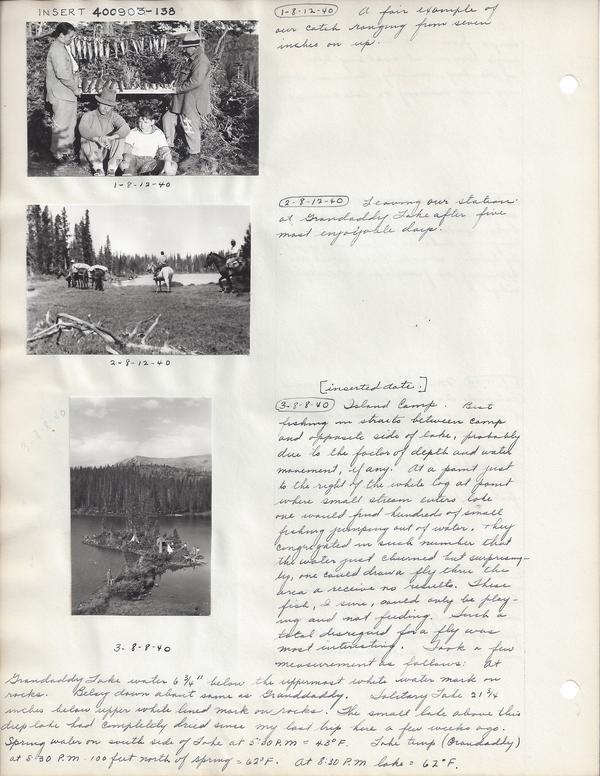 INSERT 400903-138
1-8-12-40 A fair example of
our catch ranging from seven
inches on up.
1-8-12-40
2-8-12-40 Leaving our station
at Grandaddy Lake after five
most enjoyable days.
2-8-12-40
[inserted date.]
3-8-8-40 Island Camp. Best
fishing in straits between camp
and opposite side of lake, probably
due to the factor of depth and water
movement, if any. At a point just
to the right of the white log at point
where small stream enters lake
one would find hundreds of small
fishing jumping out of water. They
congregated in such number that
the water just churned but surprising-
ly, one could draw a fly thru the
area a receive no results. These
fish, I sure, could only be play-
ing and not feeding. Such a
total disregard for a fly was
most interesting. Took a few
measurement as follows: At
3-8-8-40
Grandaddy Lake water 6 3/4" below the uppermost white water mark on
rocks. Betsy down about same as Granddaddy. Solitary Lake 21 3/4
inches below upper white lined mark on rocks. The small lake above this
deep lake had completely dried since my last trip here a few weeks ago.
Spring water on south side of Lake at 5:30 P.M = 43°F. Lake temp (Grandaddy)
at 5:30 P.M. 100 feet north of spring = 62°F. At 8:30 P.M lake = 62°F.